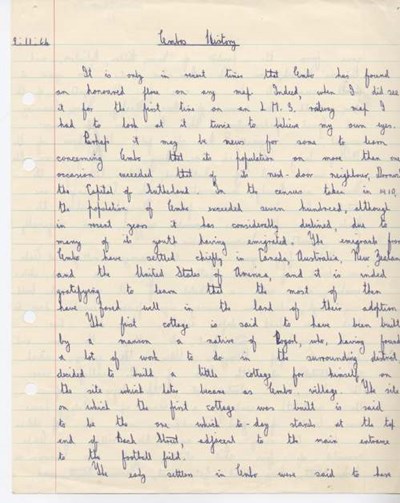 9:11:66 Embo History
It is only in recent times that Embo has found
an honoured place on any map. Indeed, when I did see
it for the first time on an L.M.S. railway map I
had to look at it twice to believe my own eyes.
Perhaps it may be news for some to learn
concerning Embo that its population on more than one
occasion exceeded that of its next-door neighbour, Dornoch
the Capital of Sutherland. In the census taken in 1910,
the population of Embo exceeded seven hundred, although
in recent years it has considerably declined, due to
many of its youth having emigrated. The emigrants from
Embo have settled chiefly in Canada, Australia, New Zealand
and the United States of America, and it is indeed
gratifying to learn that the most of them
have fared well in the land of their adoption
The first cottage is said to have been built
by a mason a native of Rogart, who, having found
a lot of work to do in the surrounding district
decided to build a little cottage for himself on
the site which later became as Embo village. The site
on which the first cottage was built is said
to be the one which to-day stands at the top
end of Back Street, adjacent to the main entrance
to the football field.
The early settlers in Embo were said to have